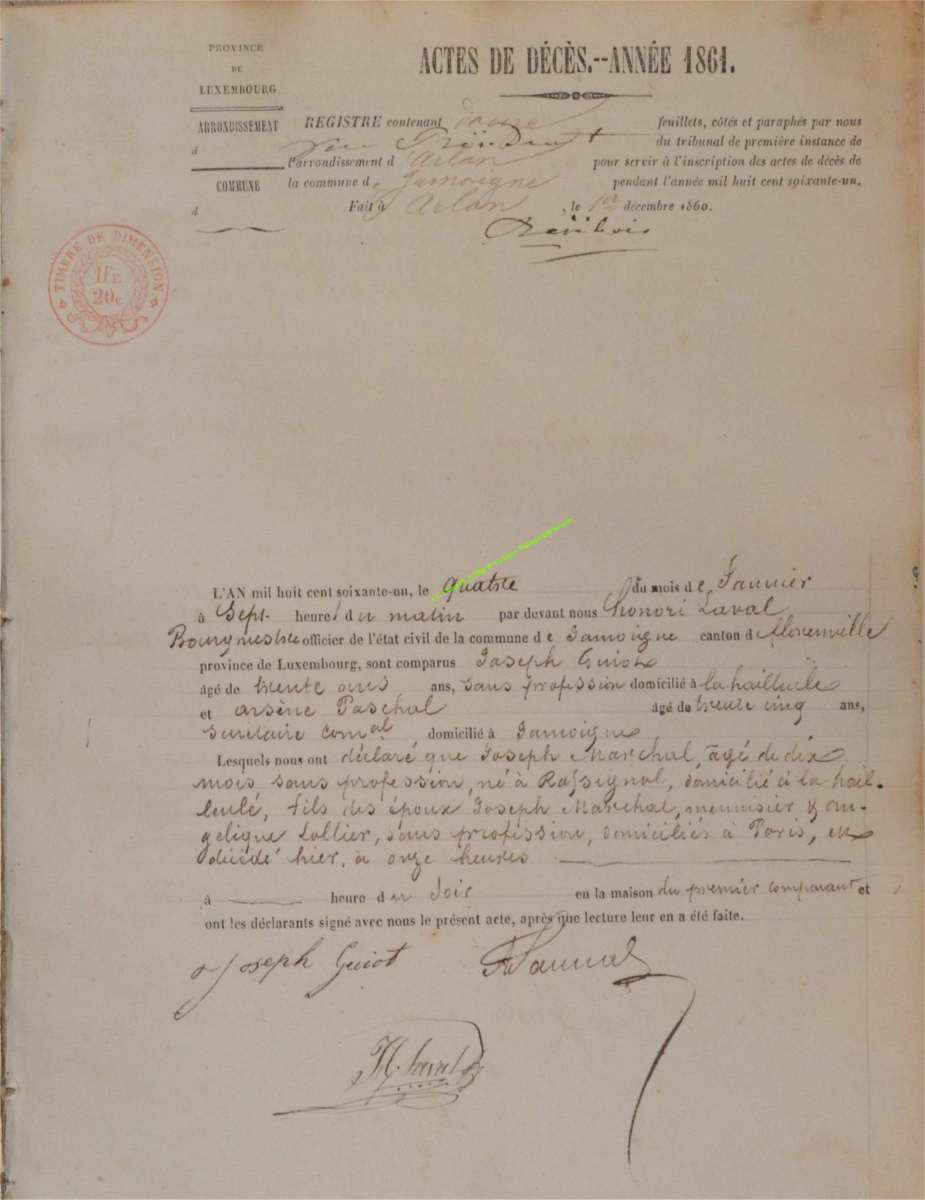 PROVINCE
DE
LUXEMBOURG.
ARRONDISSEMENT
d
COMMUNE
d
ACTES DE DÉCÈS.--ANNÉE 1861.
REGISTRE contenant douze feuillets, côtés et paraphés par nous
Président du tribunal de première instance de
l'arrondissement d'Arlon pour servir à l'inscription des actes de décès de
la commune de Jamoigne pendant l'année mil huit cent soixante-un.
Fait à Arlon, le 1er décembre 1860.
TIMBRE DE DIMENSION
1fr.
20c.
L'AN mil huit cent soixante-un, le quatre du mois de Janvier
à Sept heures du matin par devant nous Honoré Laval
Bourgmestre officier de l'état civil de la commune de Jamoigne canton de florenville
province de Luxembourg, sont comparus Joseph Guiot
âgé de trente ans ans, sans profession domicilié à la hailleule
et arsène Paschal âgé de trente cinq ans,
secrétaire comal domicilié à Jamoigne
Lesquels nous ont déclaré que Joseph Marchal, âgé de dix
mois sans profession, né à Rossignol, domicilié à la hail-
leulé, fils des époux Joseph Marchal, menuisier & an-
gelique Lollier, sans profession, domiciliés à Paris, est
décédé hier, a onze heures
à heure du soir en la maison du premier comparant et
ont les déclarants signé avec nous le présent acte, après que lecture leur en a été faite.
Joseph Guiot
H. Laval